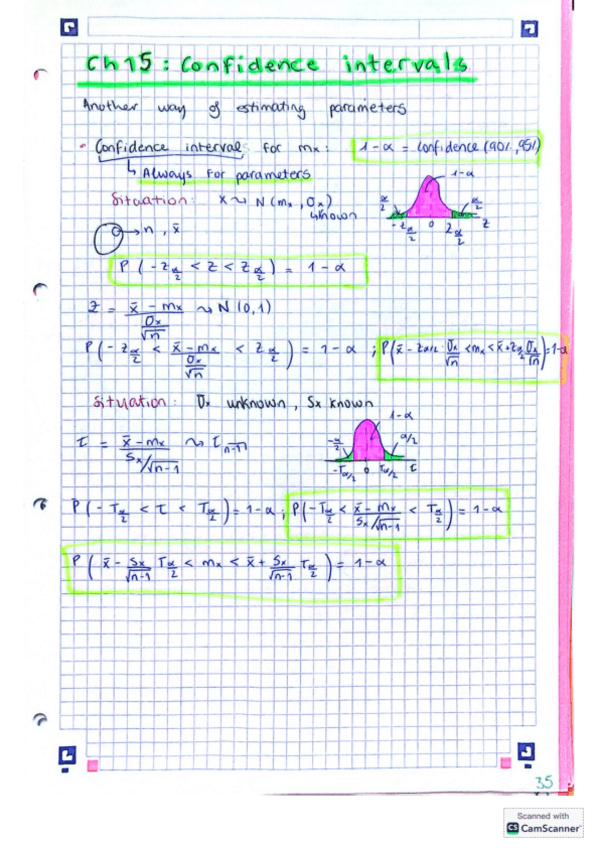 Ch 15: Confidence intervals
Another way of estimating parameters
- Confidence interval for mx: 1-α = confidence (90%, 95%)
↳ Always for parameters
Situation: X ~ N(mx, σx)
known
1-α
α/2 α/2
-Zα/2 0 Zα/2 Z
→ n, x̄
P(-Zα/2 < Z < Zα/2) = 1-α
Z = (x̄ - mx)/(σx/√n) ~ N(0,1)
P(-Zα/2 < (x̄ - mx)/(σx/√n) < Zα/2) = 1-α ; P(x̄ - Zα/2 · σx/√n < mx < x̄ + Zα/2 σx/√n) = 1-α
Situation: σx unknown, Sx known
1-α
-α/2 α/2
-Tα/2 0 Tα/2 t
t = (x̄ - mx)/(Sx/√n-1) ~ t n-1
P(-Tα/2 < t < Tα/2) = 1-α ; P(-Tα/2 < (x̄ - mx)/(Sx/√n-1) < Tα/2) = 1-α
P(x̄ - Sx/√n-1 Tα/2 < mx < x̄ + Sx/√n-1 Tα/2) = 1-α
35
Scanned with
CS CamScanner